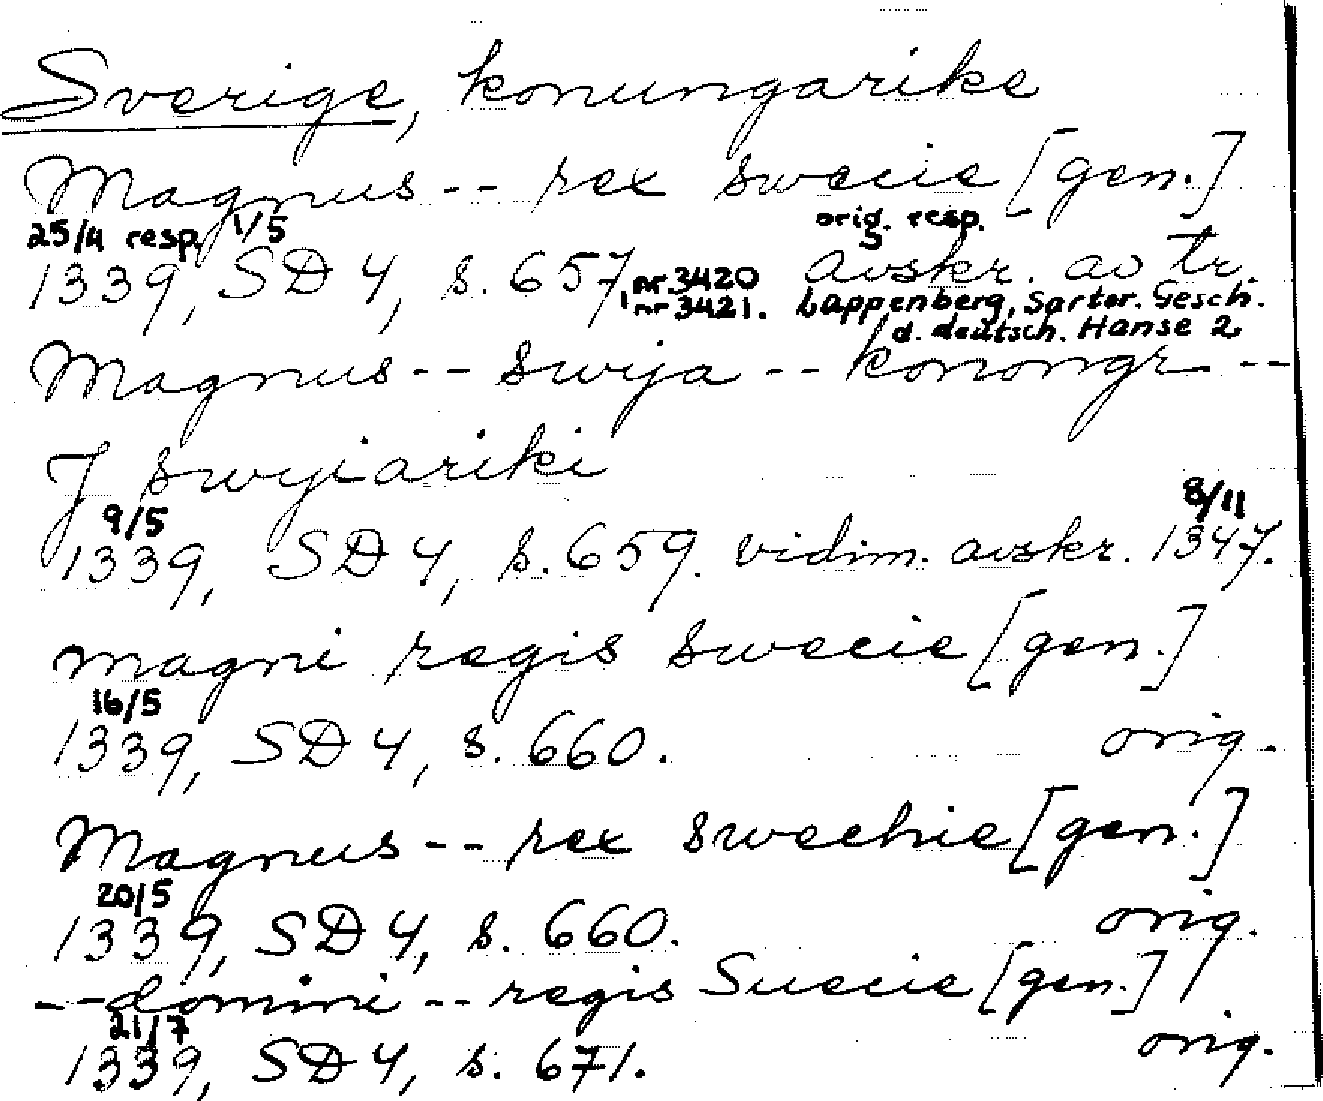 Sverige, konungarike
Magnus -- rex swecie [gen.]
25/4 resp. 1/5 orig. resp.
1339, SD 4, s. 657, nr 3420 avskr. av tr.
nr 3421. Lappenberg, Sartor. Gesch.
d. deutsch. Hanse 2
Magnus -- swija -- konongr --
J swyiariki
9/5 8/11
1339, SD 4, s. 659. vidim. avskr. 1347.
magni regis swecie [gen.]
16/5
1339, SD 4, s. 660. orig.
Magnus -- rex swechie [gen.]
20/5
1339, SD 4, s. 660. orig.
-- domini -- regis Suecie [gen.]
21/7
1339, SD 4, s. 671. orig.